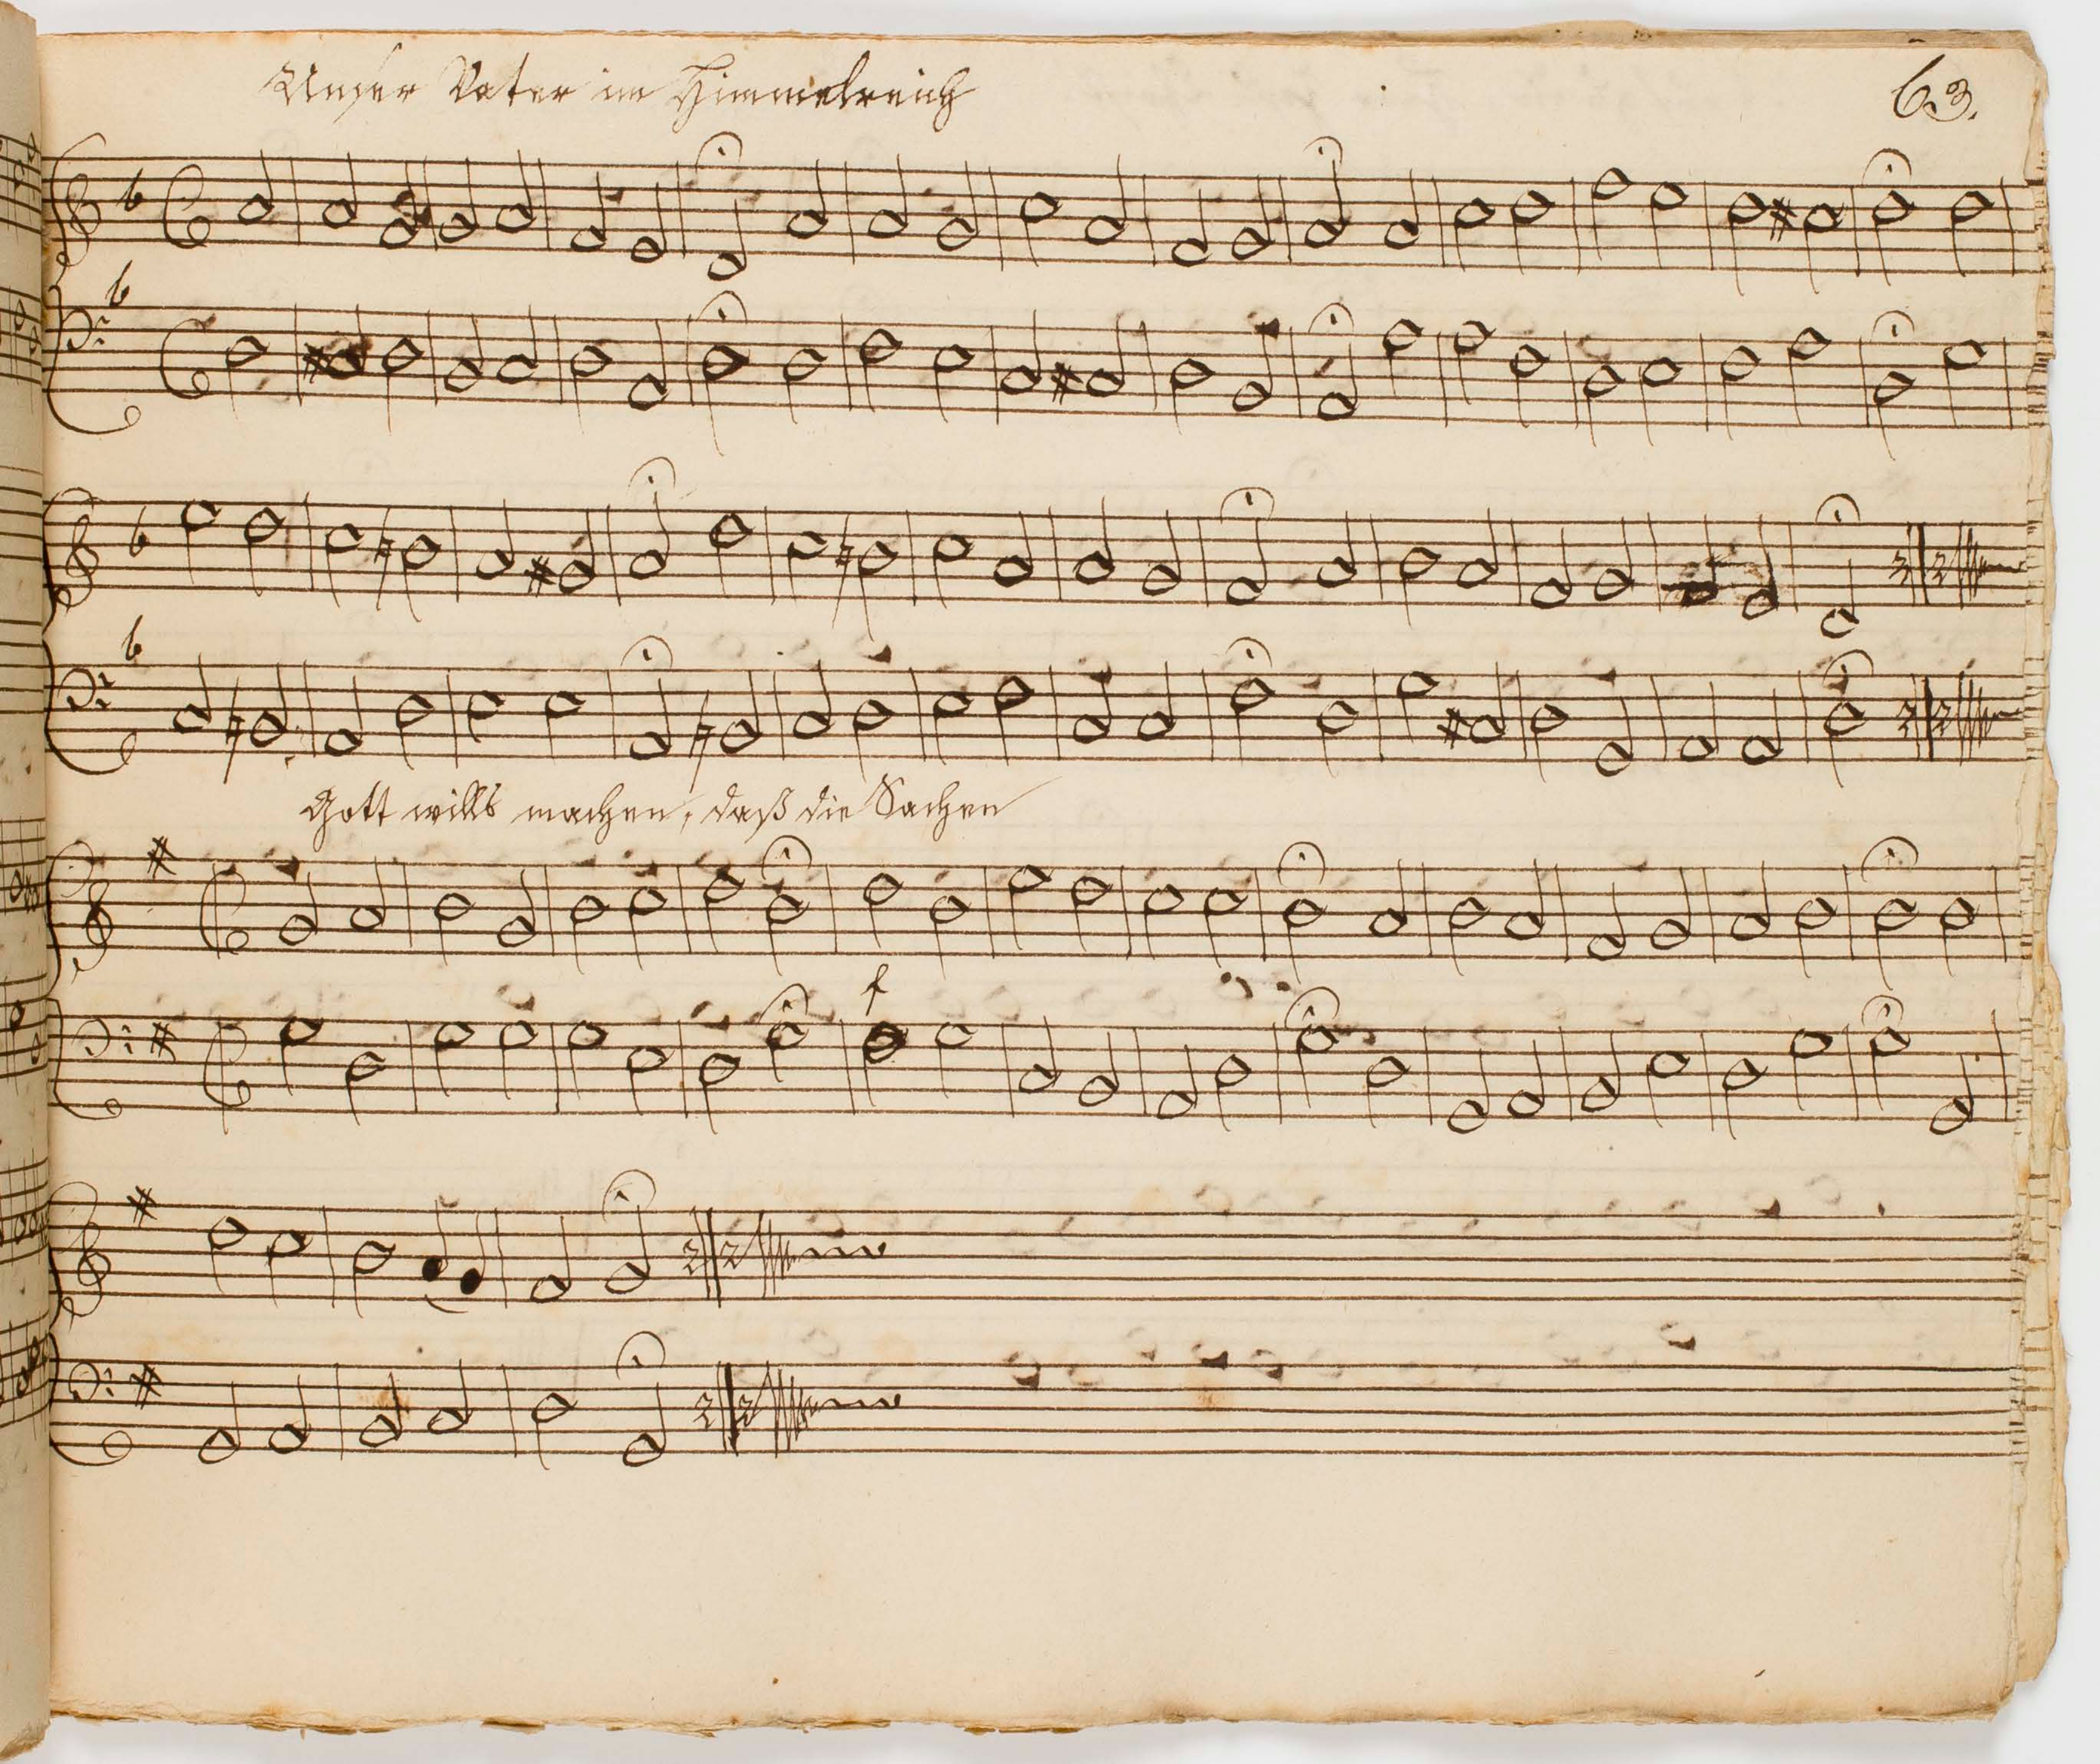 Unser Vater im Himmelreich
63.
Gott wills machen, daß die Sachen
f